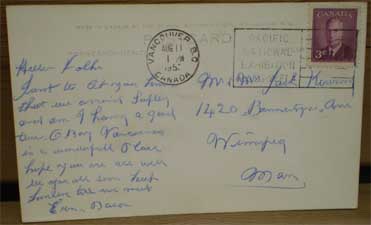 POST CARD
VANCOUVER, B.C.
AUG 11
1 PM
195
CANADA
PACIFIC
NATIONAL
EXHIBITION
CANADA
3
Hello Folks
Just to let you know
that we arrived safely
and am I having a good
time O Boy Vancouver
is a wonderfull Place
hope you are all well
see you all soon keep
smiling till we meet
Mr & Mrs Jack
1420 Bannatyne Ave
Winnipeg
Man